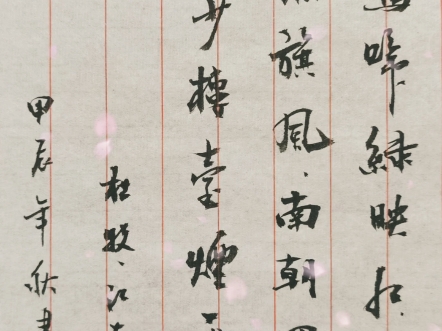 啼緑映红
旗风、南朝
少樓臺煙
杜牧、江
甲辰年秋